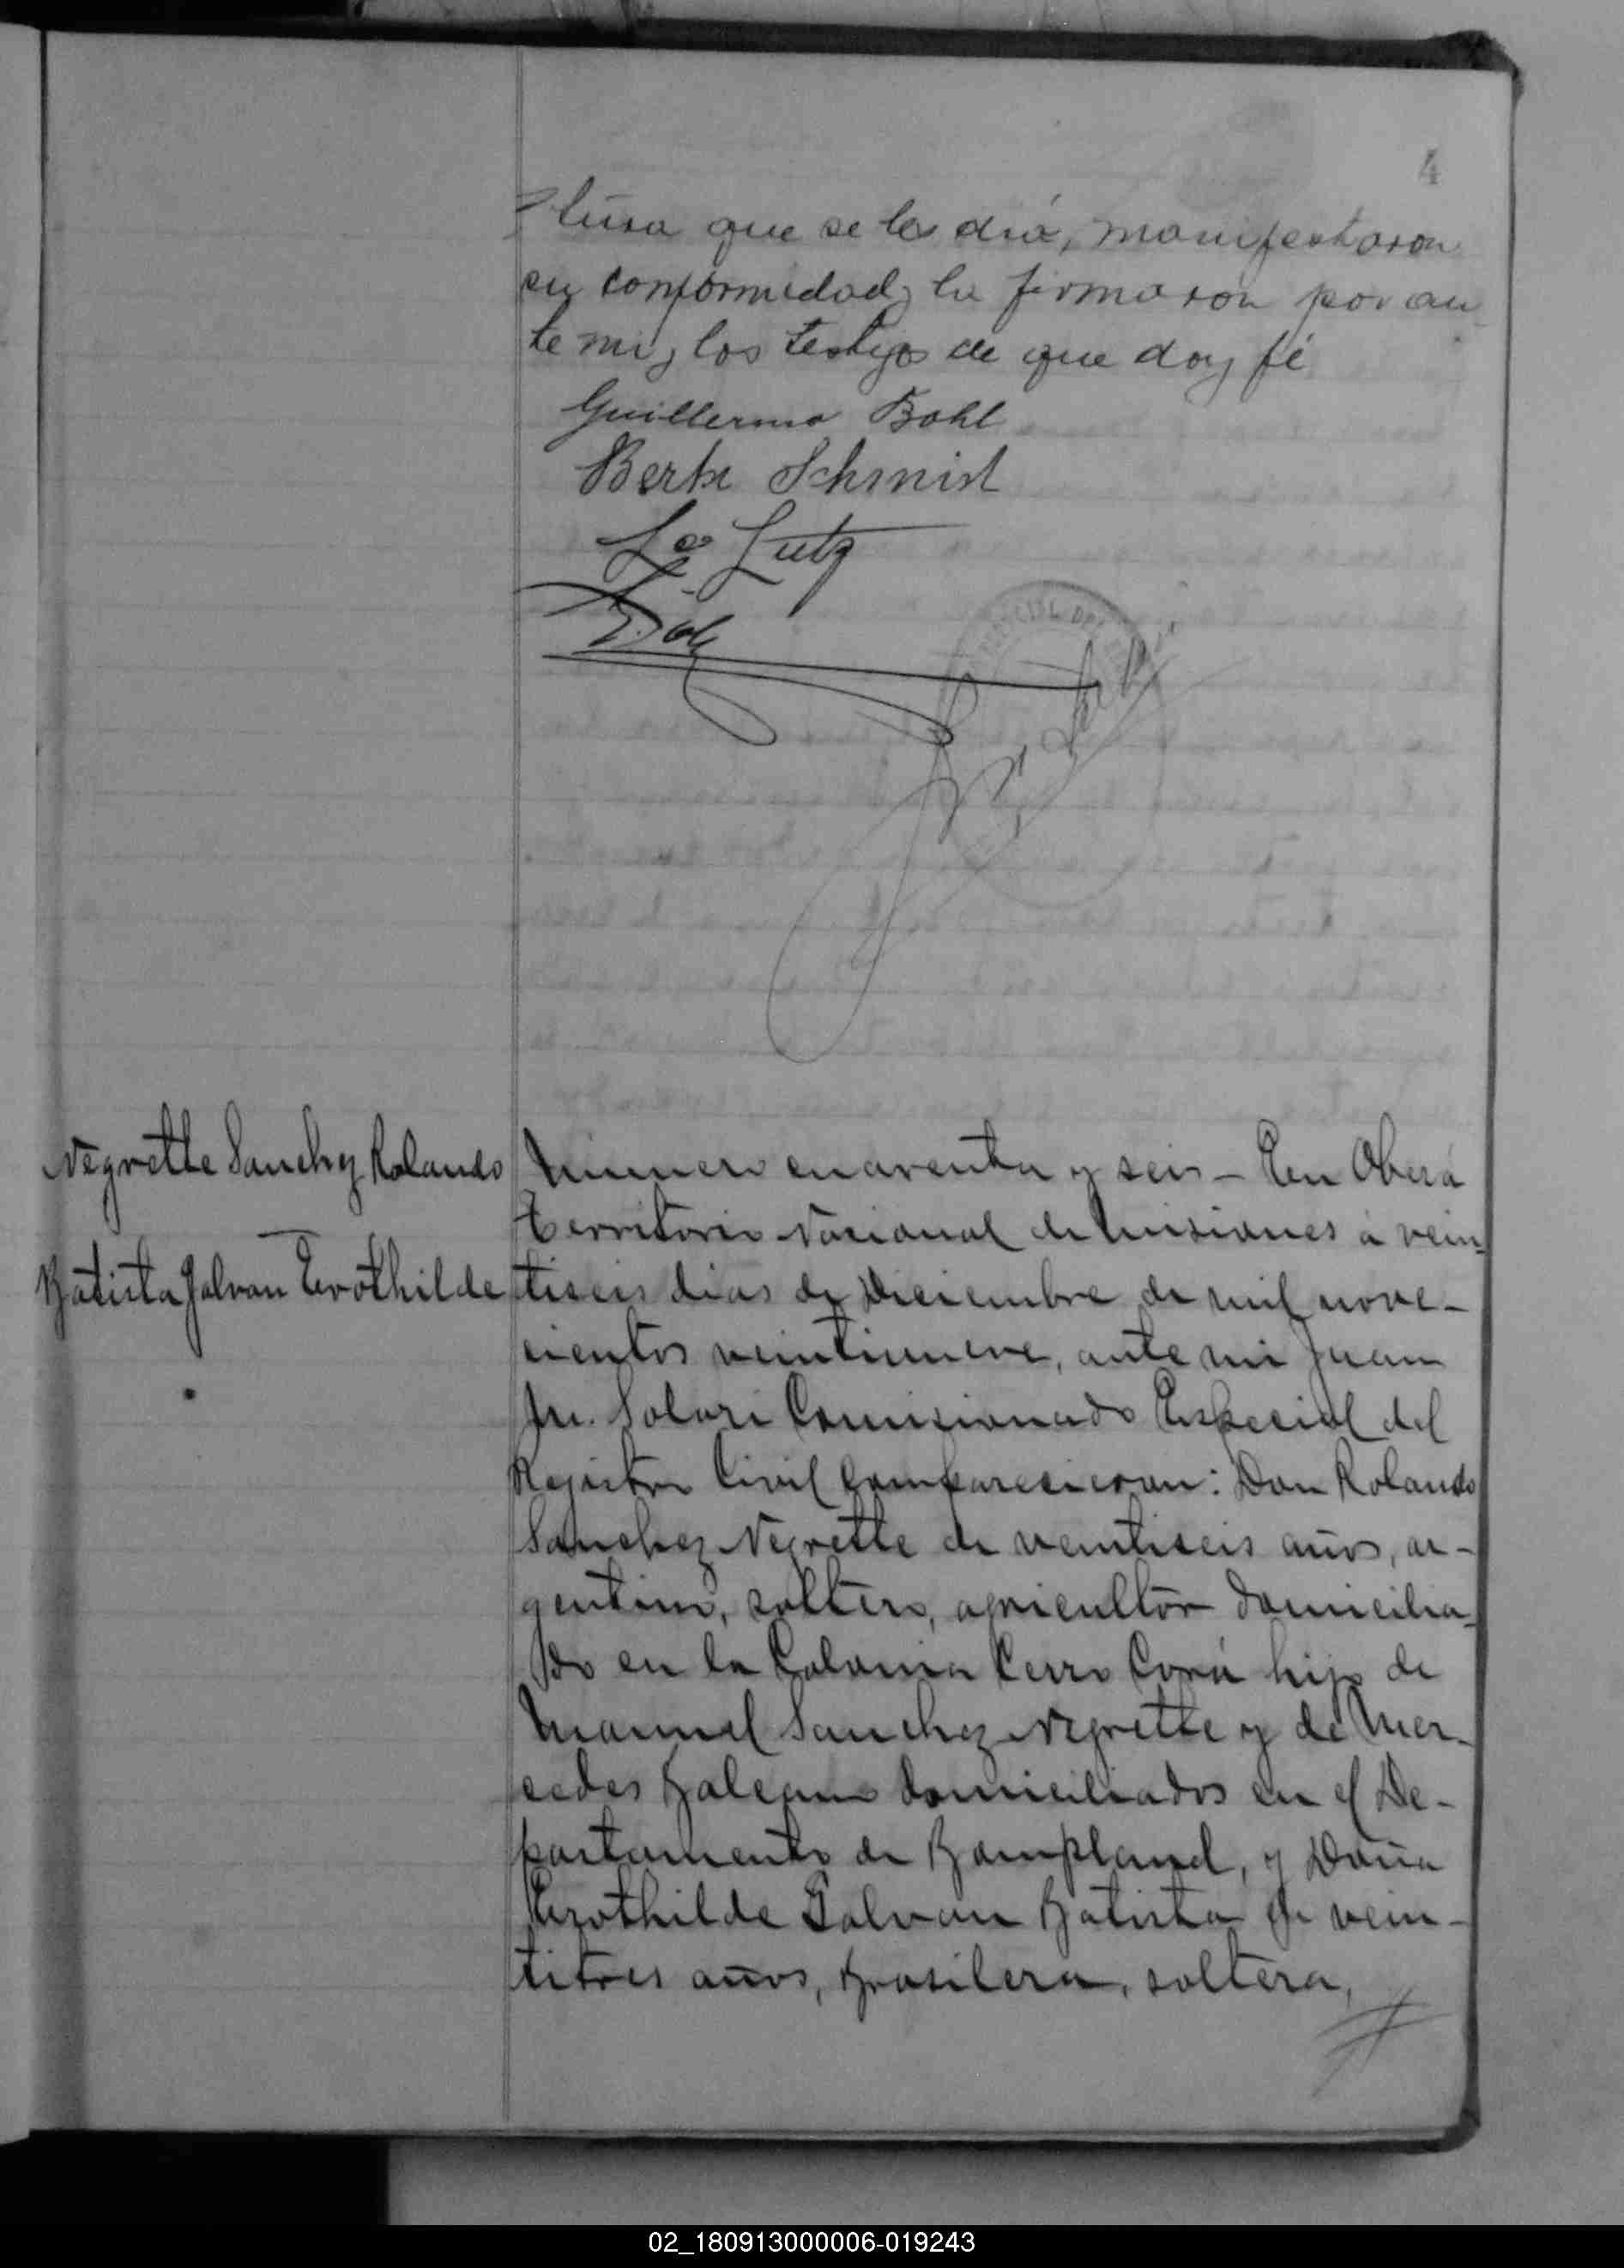 4
tura que se les dió, manifestaron
su conformidad y la firmaron por an
te mi y los testigos de que doy fé
Guillermo Bohl
Berta Schmid
Lutz
Negrette Sanchez Rolando
Batista Galvan Erothilde
Numero cuarenta y seis – En Oberá
Territorio Nacional de Misiones á vein-
tiseis dias de Diciembre de mil nove-
cientos veintinueve, ante mi Juan
M. Solari Comisionado Especial del
Registro Civil Comparecieron: Don Rolando
Sanchez Negrette de veintiseis años, ar-
gentino, soltero, agricultor domicilia-
do en la Colonia Cerro Corá hijo de
Manuel Sanchez Negrette y de Mer-
cedes Galeano domiciliados en el De-
partamento de Bompland, y Doña
Erothilde Galvan Batista de vein-
titres años, Brasilera, soltera,
02_180913000006-019243